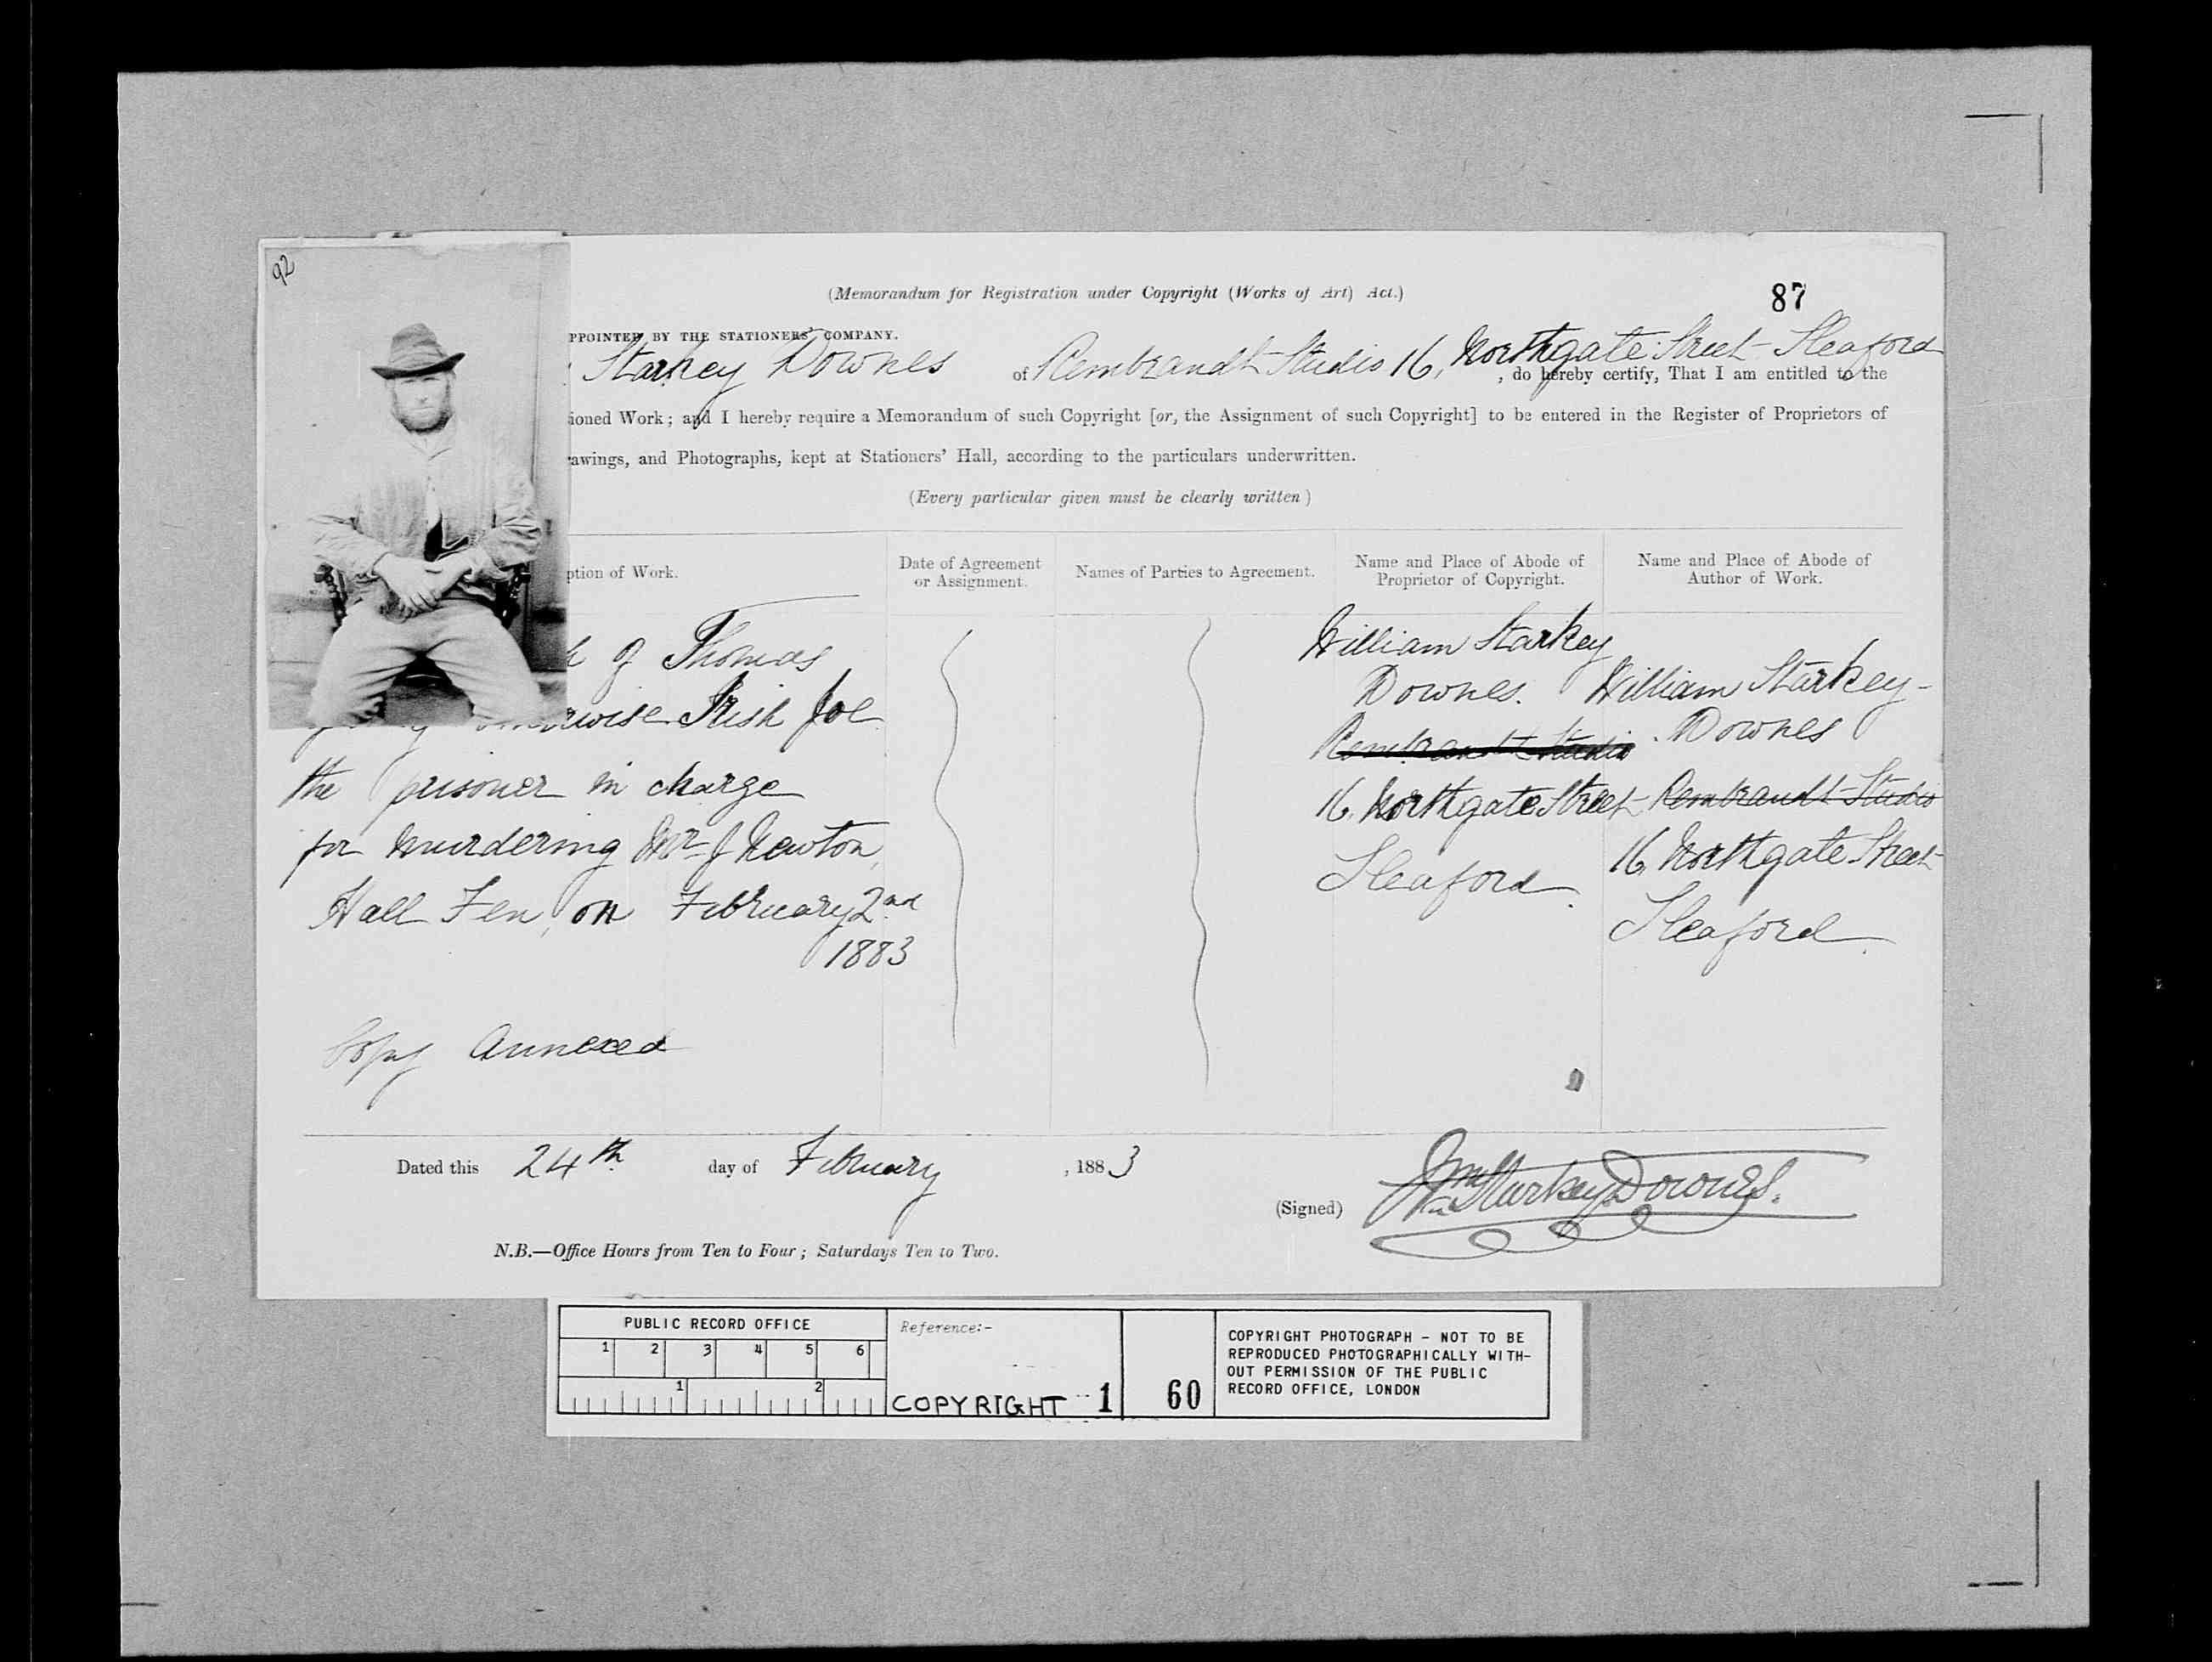 92
(Memorandum for Registration under Copyright (Works of Art) Act.)
87
PPOINTED BY THE STATIONERS' COMPANY.
Starkey Downes of Rembrandt Studio 16, Northgate Street Sleaford
, do hereby certify, That I am entitled to the
ioned Work; and I hereby require a Memorandum of such Copyright [or, the Assignment of such Copyright] to be entered in the Register of Proprietors of
rawings, and Photographs, kept at Stationers' Hall, according to the particulars underwritten.
(Every particular given must be clearly written)
ption of Work.
Date of Agreement
or Assignment.
Names of Parties to Agreement.
Name and Place of Abode of
Proprietor of Copyright.
Name and Place of Abode of
Author of Work.
h of Thomas
rwise Irish Joe
the prisoner in charge
for murdering Mr J Newton,
Hall Fen, on February 2nd
1883
Copy Annexed
William Starkey
Downes.
Rembrandt Studio
16, Northgate Street
Sleaford.
William Starkey-
Downes
Rembrandt Studio
16, Northgate Street
Sleaford.
Dated this 24th day of February, 1883
(Signed) Wm Starkey Downes.
N.B.—Office Hours from Ten to Four; Saturdays Ten to Two.
PUBLIC RECORD OFFICE
1 2 3 4 5 6
1 2
Reference:-
COPYRIGHT 1
60
COPYRIGHT PHOTOGRAPH - NOT TO BE
REPRODUCED PHOTOGRAPHICALLY WITH-
OUT PERMISSION OF THE PUBLIC
RECORD OFFICE, LONDON